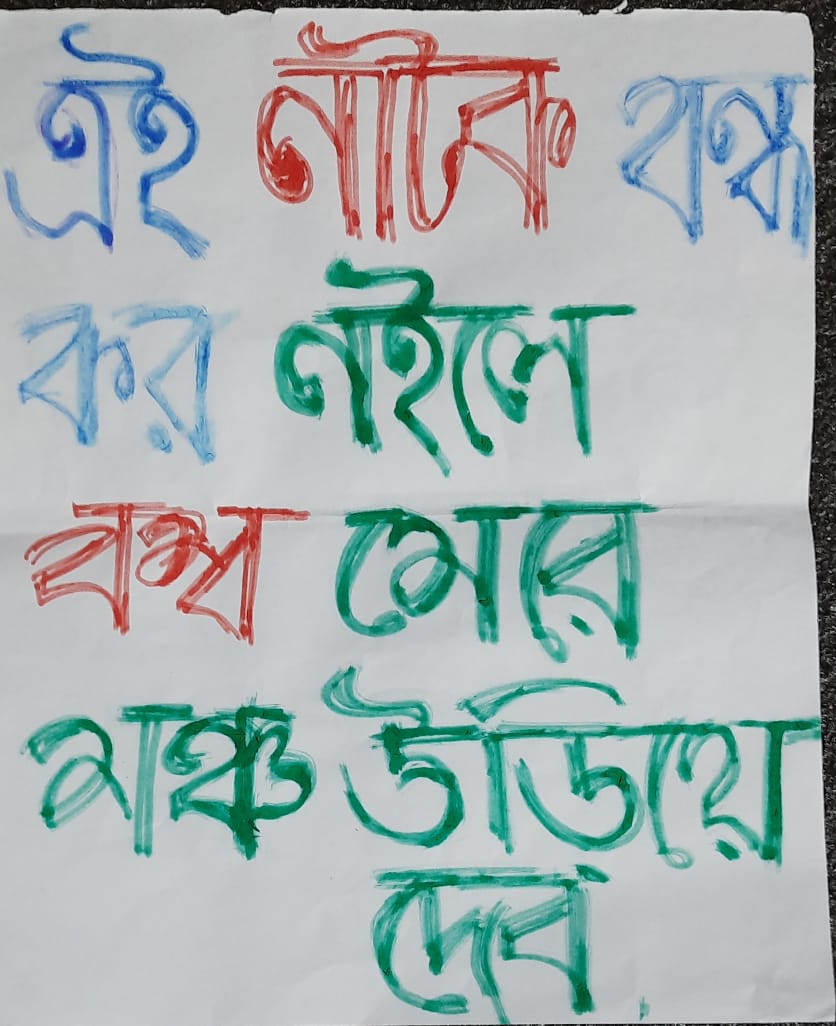 এই নাটক বন্ধ
কর নইলে
বম্ব মেরে
মঞ্চ উড়িয়ে
দেব